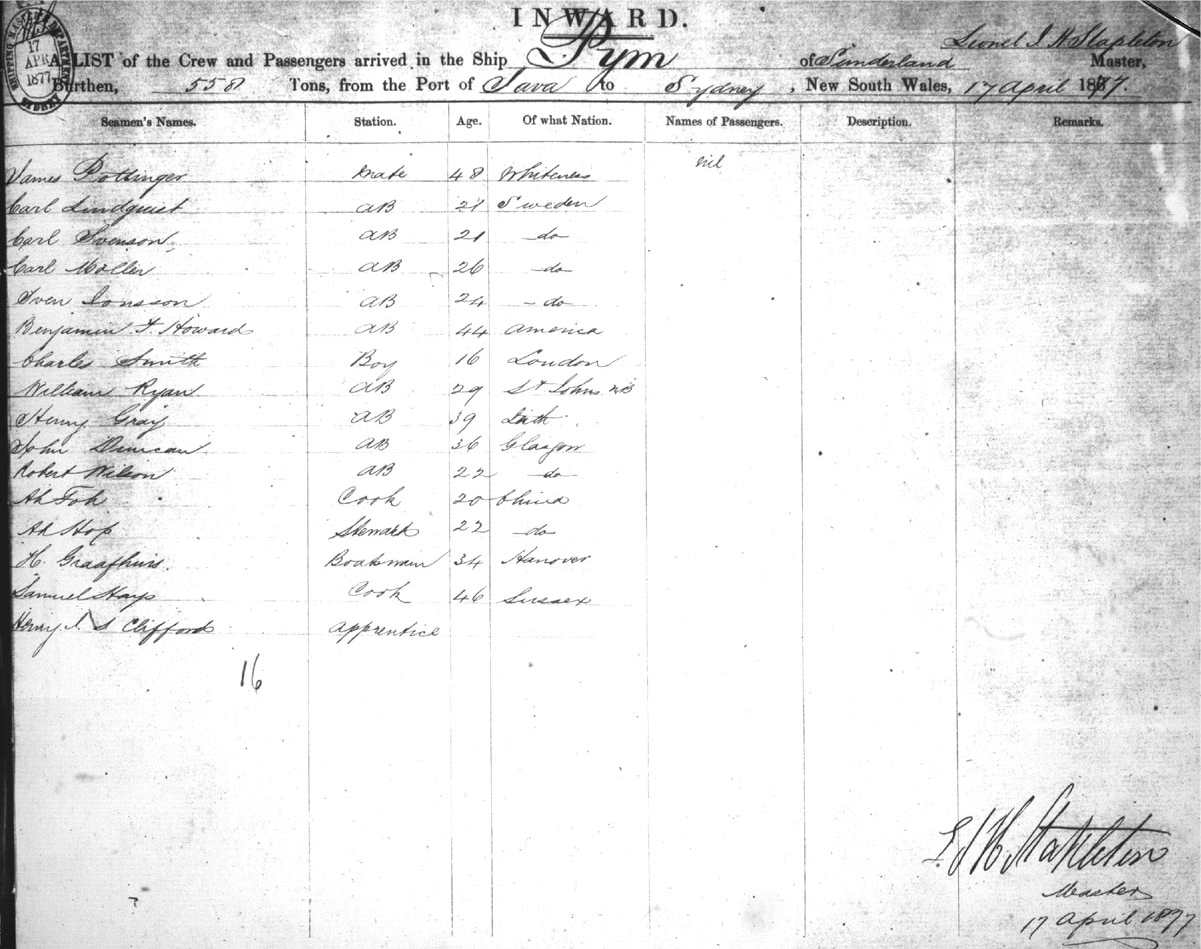 INWARD.
SHIPPING MASTER'S DEPARTMENT
17
APR
1877
SYDNEY
Lionel J H Stapleton
A LIST of the Crew and Passengers arrived in the Ship Pym of Sunderland Master,
Burthen, 558 Tons, from the Port of Java to Sydney, New South Wales, 17 April 1877.
Seamen's Names. Station. Age. Of what Nation. Names of Passengers. Description. Remarks.
James Pottinger Mate 48 Whiteness nil
Carl Lindquist AB 21 Sweden
Carl Svenson AB 21 do
Carl Moller AB 26 do
Sven Jonsson AB 24 do
Benjamin F. Howard AB 44 America
Charles Smith Boy 16 London
William Ryan AB 29 St Johns NB
Henry Gray AB 39 Leith
John Duncan AB 36 Glasgow
Robert Wilson AB 22 do
Ah Foh Cook 20 China
Ah Hop Steward 22 do
H. Graafhuis Boatswain 34 Hanover
Samuel Hays Cook 46 Sussex
Henry J. S Clifford Apprentice
16
L J H Stapleton
Master
17 April 1877